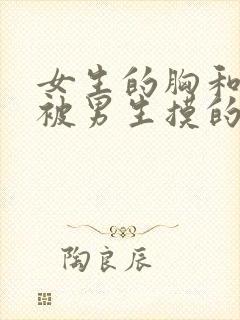 女生的胸和
被男生摸的
陶良辰